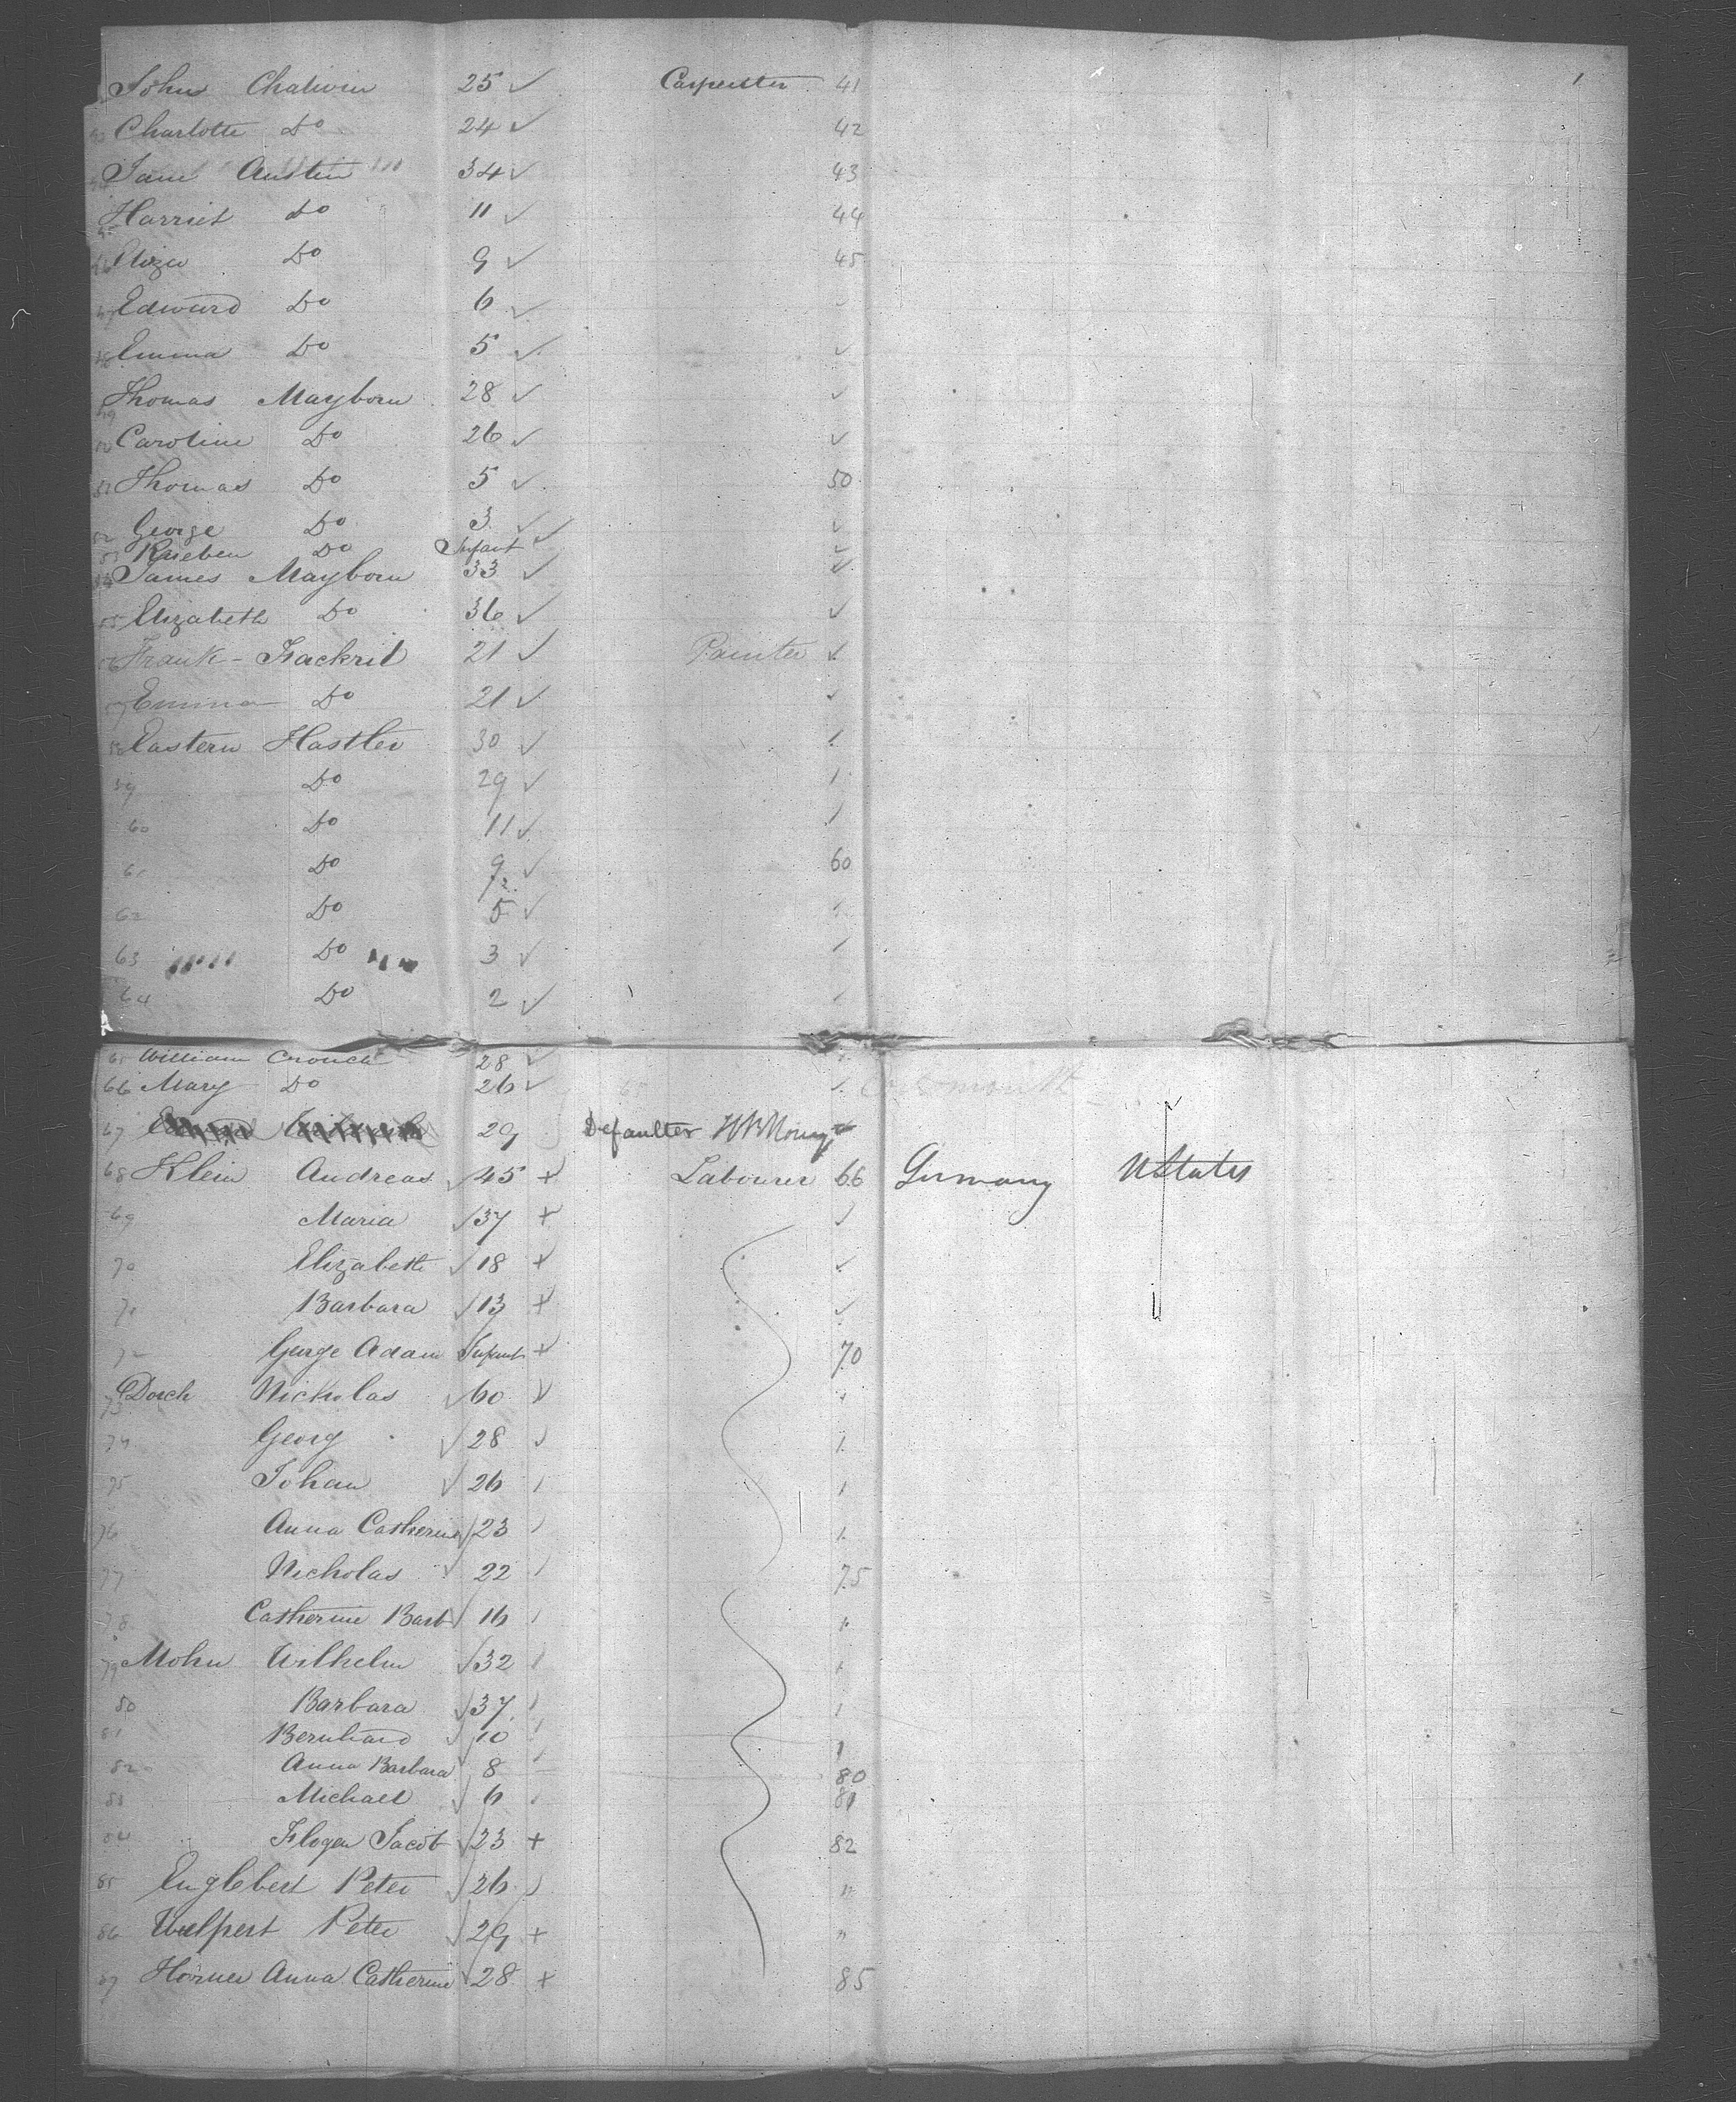 John Chalwin 25 ✓ Carpenter 41
Charlotte Do 24 ✓ 42
Jane Austin 34 ✓ 43
Harriet do 11 ✓ 44
Eliza Do 9 ✓ 45
Edward Do 6 ✓
Emma Do 5 ✓ ✓
Thomas Mayborn 28 ✓ ✓
Caroline Do 26 ✓ ✓
51 Thomas Do 5 ✓ 50
52 George Do 3 ✓ ✓
53 Do Infant ✓ ✓
54 James Mayborn 33 ✓ ✓
55 Elizabeth Do 36 ✓ ✓
56 Frank - 21 ✓ Painter ✓
57 Emma Do 21 ✓ ✓
58 Eastern Hastler 30 ✓
59 Do 29 ✓
60 Do 11 ✓
61 Do 9 ✓ 60
62 Do 5 ✓
63 Do 3 ✓
64 Do 2 ✓
65 William Crouch 28 ✓
66 Mary Do 26 ✓ ✓
67 29 Defaulter
68 Klein Andreas ✓ 45 + Labourer 66 Germany UStates
69 Maria ✓ 37 + ✓
70 Elizabeth ✓ 18 + ✓
71 Barbara ✓ 13 + ✓
72 George Adam Infant + 70
73 Dorch Nicholas ✓ 60
74 Georg ✓ 28
75 Johan ✓ 26
76 Anna Catherine ✓ 23
77 Nicholas ✓ 22 75
78 Catherine Barb ✓ 16
79 Mohn Wilhelm ✓ 32
80 Barbara ✓ 37
81 Bernhard ✓ 10
82 Anna Barbara ✓ 8 80
83 Michael ✓ 6 81
84 Flogen Jacob ✓ 23 + 82
85 Englebert Peter ✓ 26 "
86 Wulpert Peter ✓ 29 + "
87 Hörner Anna Catherine ✓ 28 + 85